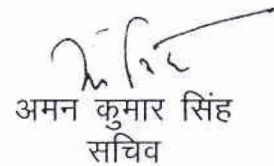 अमन कुमार सिंह
सचिव